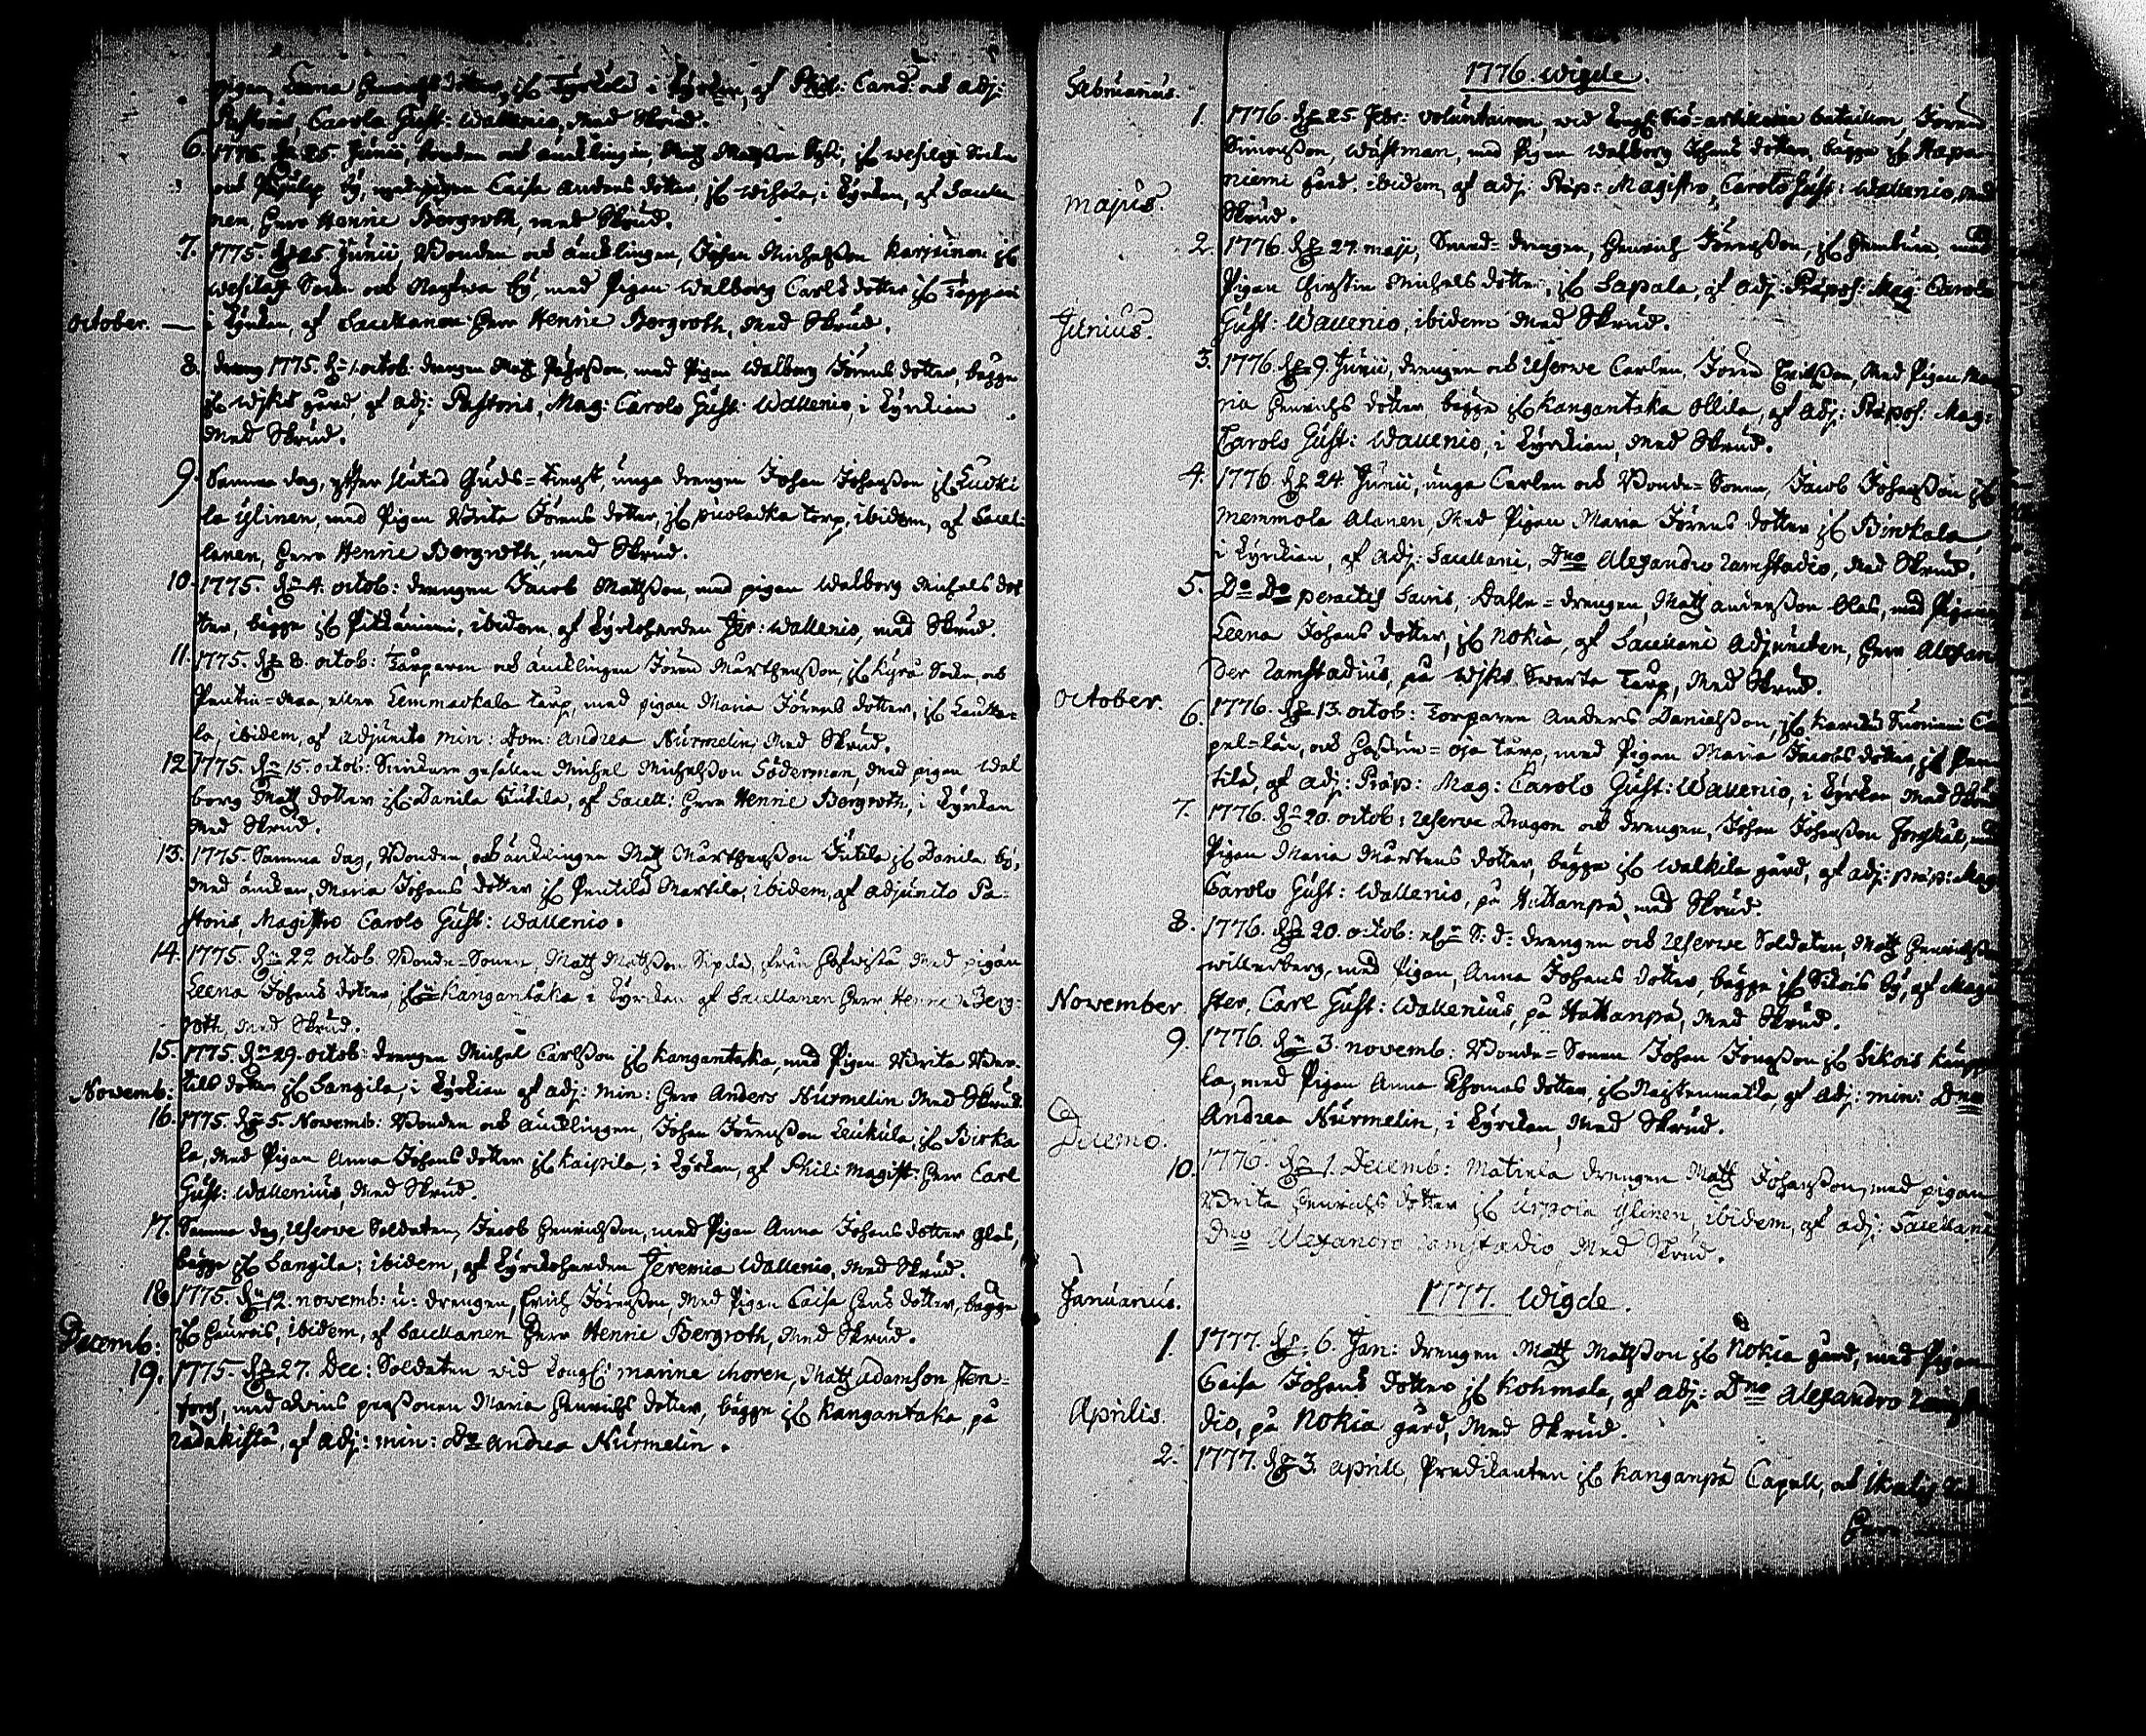 pigan Leena Henrichs dotter, if Tyrkölä i Kyrckan, af Phil: Cand: och adj:
Pastoris, Carolo Gust: Wallenio, med Skrud.
6. 1775. d. 25. Junii, bonden och äncklingen, Matz Matsson, if Wesilax Sokn
och by, med pigan Caisa Anders dotter, if Wihola, i Kyrckan, af Sacella-
nen, Herr Henric Bergroth, med Skrud.
7. 1775. d. 25. Junii Bonden och äncklingen, Johan Michelsson Karjuinen if
Wesilax Sokn och by, med Pigan Walborg Carls dotter if Toppari
October. — i Kyrckan, af Sacellanen Herr Henric Bergroth, med Skrud.
8. 1775. d. 1. octob: drengen Matz, med Pigan Walborg Jörens dotter, bägge
if Wiks gård, af adj: Pastoris, Mag: Carolo Gust: Wallenio, i Kyrckian
med Skrud.
9. Samma dag, efter slutad Guds=tienst, unga drengen Johan Johansson if Luoki
la Ylinen, med Pigan Brita Jörens dotter, if torp, ibidem, af Sacel-
lanen, Herr Henric Bergroth, med Skrud.
10. 1775. d. 4. octob: drengen Jacob Mattsson, med pigan Walborg Michels dot
ter, bägge if Pitkäniemi, ibidem, af Kyrckoherden Jer: Wallenio, med Skrud.
11. 1775. d. 8. octob: Torparen och äncklingen Jören Mårthensson, if Kyro Sokn, och
eller Lemmackala torp, med pigan Maria Jörens dotter, if
la, ibidem, af adjuncto min: Dom: Andrea Nurmelin, med Skrud.
12. 1775. d. 15. octob: gesällen Michel Michelsson Söderman, med pigan Wal
borg Matz dotter if Danila Jutila, af Sacell: Herr Henric Bergroth, i Kyrckan
med Skrud.
13. 1775. Samma dag, Bonden, och äncklingen Matz Mårthensson Jutila if Danila by,
med änckan, Maria Johans dotter if Penttilä Martila, ibidem, af adjuncto Pa-
storis, Magistro Carolo Gust: Wallenio.
14. 1775. d. 22 octob. Bonde=Sonen, Matz Matsson Sipilä, från med pigan
Leena Johans dotter, if Kangantaka i Kyrckan af Sacellanen Herr Henric Berg-
roth, med Skrud.
15. 1775. d. 29. octob: drengen Michel Carlsson if Kangantaka, med Pigan Brita Ber-
Novemb: tils dotter if Sangila, i Kyrckian af adj: min: Herr Anders Nurmelin med Skrud.
16. 1775. d. 5. Novemb: Bonden och äncklingen, Johan Jörensson Leukula, if Birka
la, med Pigan Anna Johans dotter if Kaipila, i Kyrckan, af Phil: Magist: Herr Carl
Gust: Wallenius, med Skrud.
17. Samma dag, Reserve Soldaten, Jacob Henrichsson, med Pigan Anna Johans dotter Glas,
bägge if Sangila, ibidem, af Kyrckoherden Jeremia Wallenio, med Skrud.
18. 1775. d. 12. novemb: drengen, Erich Jörensson, med Pigan Caisa Hans dotter, bägge
if Haurois, ibidem, af Sacellanen Herr Henric Bergroth, med Skrud.
Decemb:
19. 1775. d. 27. Dec: Soldaten wid Kongl: marine choren, Matz Adamson Sten-
fors, med personen Maria Henrichs dotter, bägge if Kangantaka, på
af adj: min: Do Andrea Nurmelin.
1776. Wigde.
Februarius.
1. 1776. d. 25. Febr: voluntairen, wid Kongl: Siö=artillerie batailion, Jören
Simonsson, Wästman, med Pigan Walborg Johans dotter, bägge if Hapa-
niemi gård, ibidem, af adj: Præp: Magistro, Carolo Gust: Wallenio, med
Skrud.
Majus.
2. 1776. d. 27. maji, Smed=drengen, Henrich Jörensson, if, med
Pigan Christin Michels dotter, if Sapala, af adj: Præpos: Mag: Carolo
Gust: Wallenio, ibidem med Skrud.
Junius.
3. 1776. d. 9. Junii, drengen och Reserve Carlen, Jören Ericsson, med Pigan Ma-
ria Henrichs dotter bägge if Kangantaka Ollila, af adj: Præpos: Mag:
Carolo Gust: Wallenio, i Kyrckian, med Skrud.
4. 1776. d. 24 Junii, unga Carlen och Bonde=Sonen, Jacob Johansson if
Memmola Alanen, med Pigan Maria Jörens dotter if Birckala
i Kyrckian, af adj: Sacellani, Dno Alexandro Ramstadio, med Skrud.
5. Do Do peractis sacris, drengen, Matz Andersson Olas, med Pigan
Leena Johans dotter, if Nokia, af Sacellani Adjuncten, Herr Alexan
der Ramstadius, på Wiks Swarta Torp, med Skrud.
October.
6. 1776. d. 13. octob: Torparen Anders Danielsson, if Ca
pel=län, och torp, med Pigan Maria Jacobs dotter, if Pen
tilä, af adj: Præp: Mag: Carolo Gust: Wallenio, i Kyrckan med Skrud
7. 1776. d. 20. octob: Reserve Dragon och drengen, Johan Johansson Forskåhl, med
Pigan Maria Mårtens dotter, bägge if Walkila gård, af adj: præp: Mag:
Carolo Gust: Wallenio, på Hattanpä, med Skrud.
8. 1776. d. 20. octob: drengen och Reserve Soldaten, Matz Henricsson
Willerberg, med Pigan, Anna Johans dotter, bägge if Sikois by, af Magi
November. ster, Carl Gust: Wallenius, på Hattanpä, med Skrud.
9. 1776. d. 3. novemb: Bonde=Sonen Johan Jonsson if Sikois Kuppa
la, med Pigan Anna Thomas dotter, if Naistenmatka, af Adj: min: Dno
Andrea Nurmelin, i Kyrckan, med Skrud.
Decemb.
10. 1776. d. 1. Decemb: drengen Matz Johansson, med pigan
Brita Henrichs dotter if Urpola Ylinen, ibidem, af adj: Sacellani,
Dno Alexandro Ramstadio, med Skrud.
1777. Wigde.
Januarius.
1. 1777. d. 6. Jan: drengen Matz Matsson if Nokia gård, med Pigan
Caisa Johans dotter if Kohmala, af adj: Dno Alexandro Ramsta
Aprilis. dio, på Nokia gård, med Skrud.
2. 1777. d. 3. aprill, Predikanten if Kanganpä Capell, och
Herr